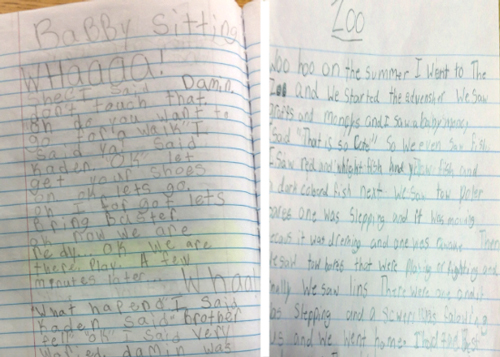 BaBBy Sitting
WHaaaa!
The! I said Damin
Don't touch that
Oh do you want to
go for a walk" I
said ya! said
Kaden "OK" let
get your shoes
on ok lets go
oh I for got lets
Bring Buster
ok now we are
redy. ok We are
there Play! A few
minutes later
Wham
"What hapend" I said
Kaden said brother
fell" ok I said very
damin was
Zoo
hoo on the summer I went to The
Zoo and We started the advensher We saw
and monkys and I saw a baby
Said "That is so Cute" So we even saw fish,
I saw red and whight fish and fish and
a dark colored fish next We saw tow poler
bares one was slepping and it was moving
it was dreming and one was Then
We saw tow bares that were playing or fighting and
We saw lins There were
slepping and a
us and we went home I had the Best